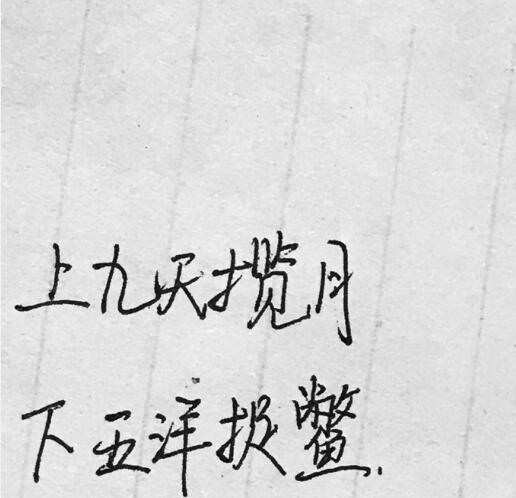 上九天揽月
下五洋捉鳖.